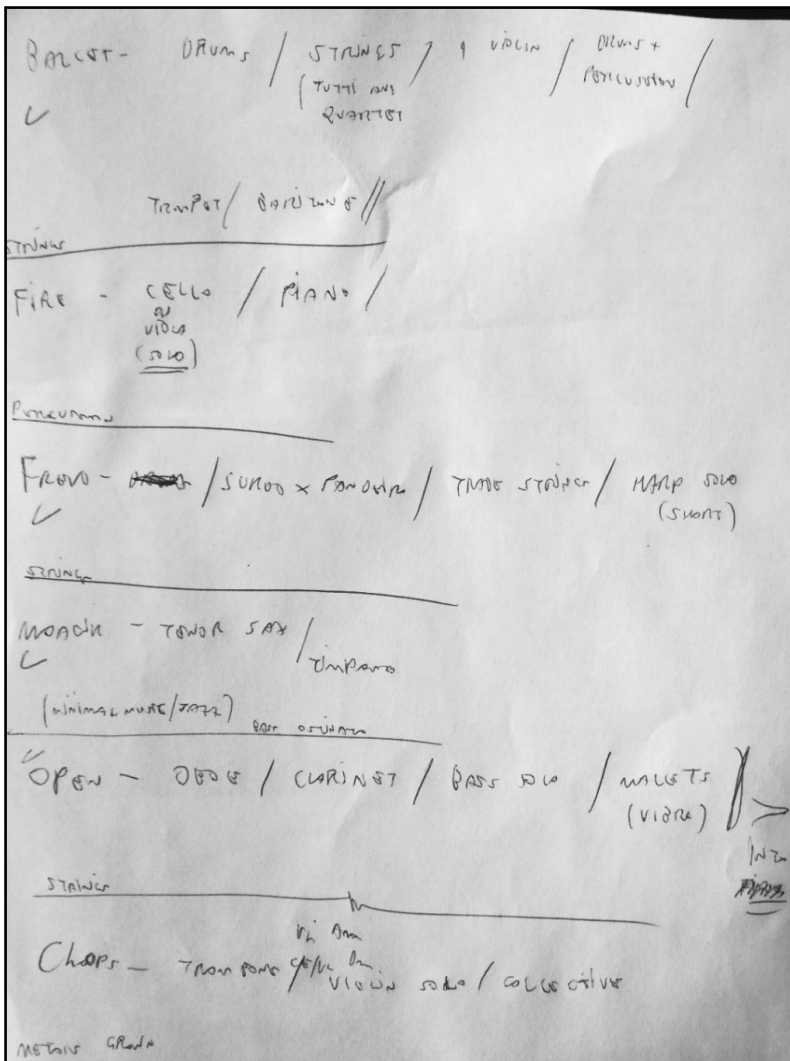 BALLET - DRUMS / STRINGS / 1 VIOLIN / DRUMS +
(TUTTI AND PERCUSSION /
QUARTET
TRUMPET / BARITONE //
STRINGS
FIRE - CELLO / PIANO /
OR
VIOLA
(SOLO)
PERCUSSION
FREVO - / SURDO x PANDEIRO / TRADE STRINGS / HARP SOLO
(SHORT)
STRINGS
MOACIR - TENOR SAX /
TIMPANO
(MINIMAL MUSIC/JAZZ) BASS OSTINATO
OPEN - OBOE / CLARINET / BASS SOLO / MALLETS
(VIBRA)
INTO
STRINGS
CHOPS - TROMBONE / VIOLIN SOLO / COLLECTIVE